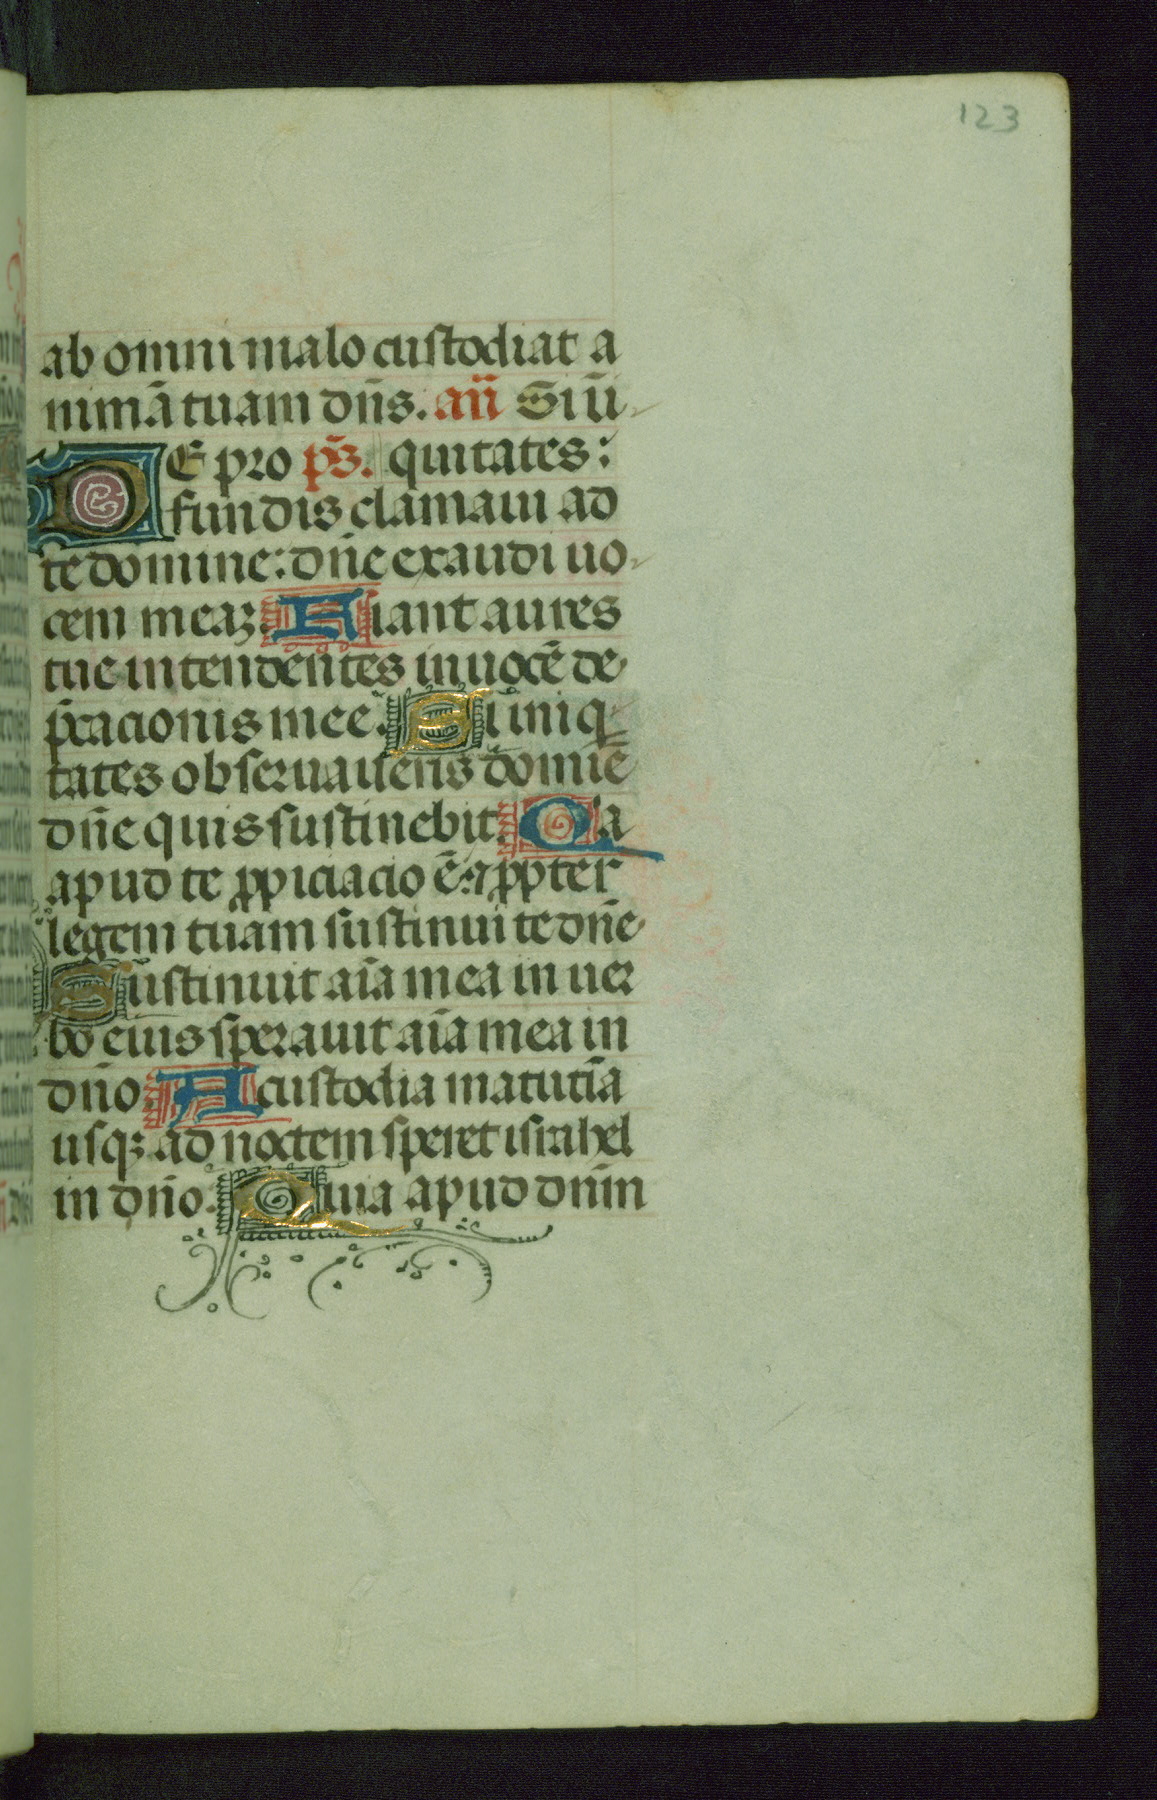 123
ab omni malo custodiat a
nimā tuam dn̄s. an̄ Si ī
DE pro ps̄. quitates:
fundis clamaui ad
te domine: dn̄e exaudi uo
cem meaꝫ. Fiant aures
tue intendentes in uocē de
p̄cacionis mee. Si iniq
tates obseruaueris domiē
dn̄e quis sustinebit. Qa
apud te ꝓpiciacio ē: ⁊ ꝓpter
legem tuam sustinui te dn̄e
Sustinuit aīa mea in uer
bo eius sperauit aīa mea in
dn̄o. A custodia matutīa
usqꝫ ad noctem speret israhel
in dn̄o. Quia apud dn̄m